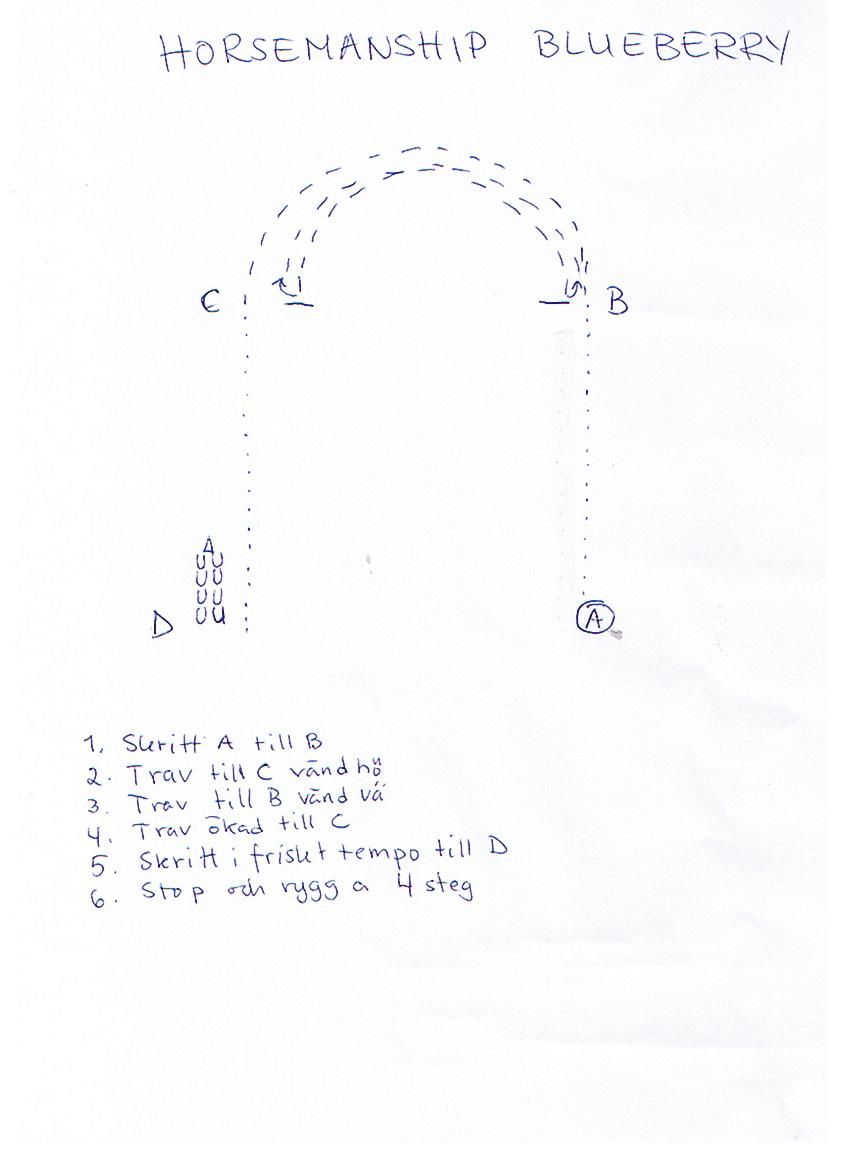 HORSEMANSHIP BLUEBERRY
C
B
D
A
1. Skritt A till B
2. Trav till C vänd hö
3. Trav till B vänd vä
4. Trav ökad till C
5. Skritt i friskt tempo till D
6. Stop och rygga 4 steg